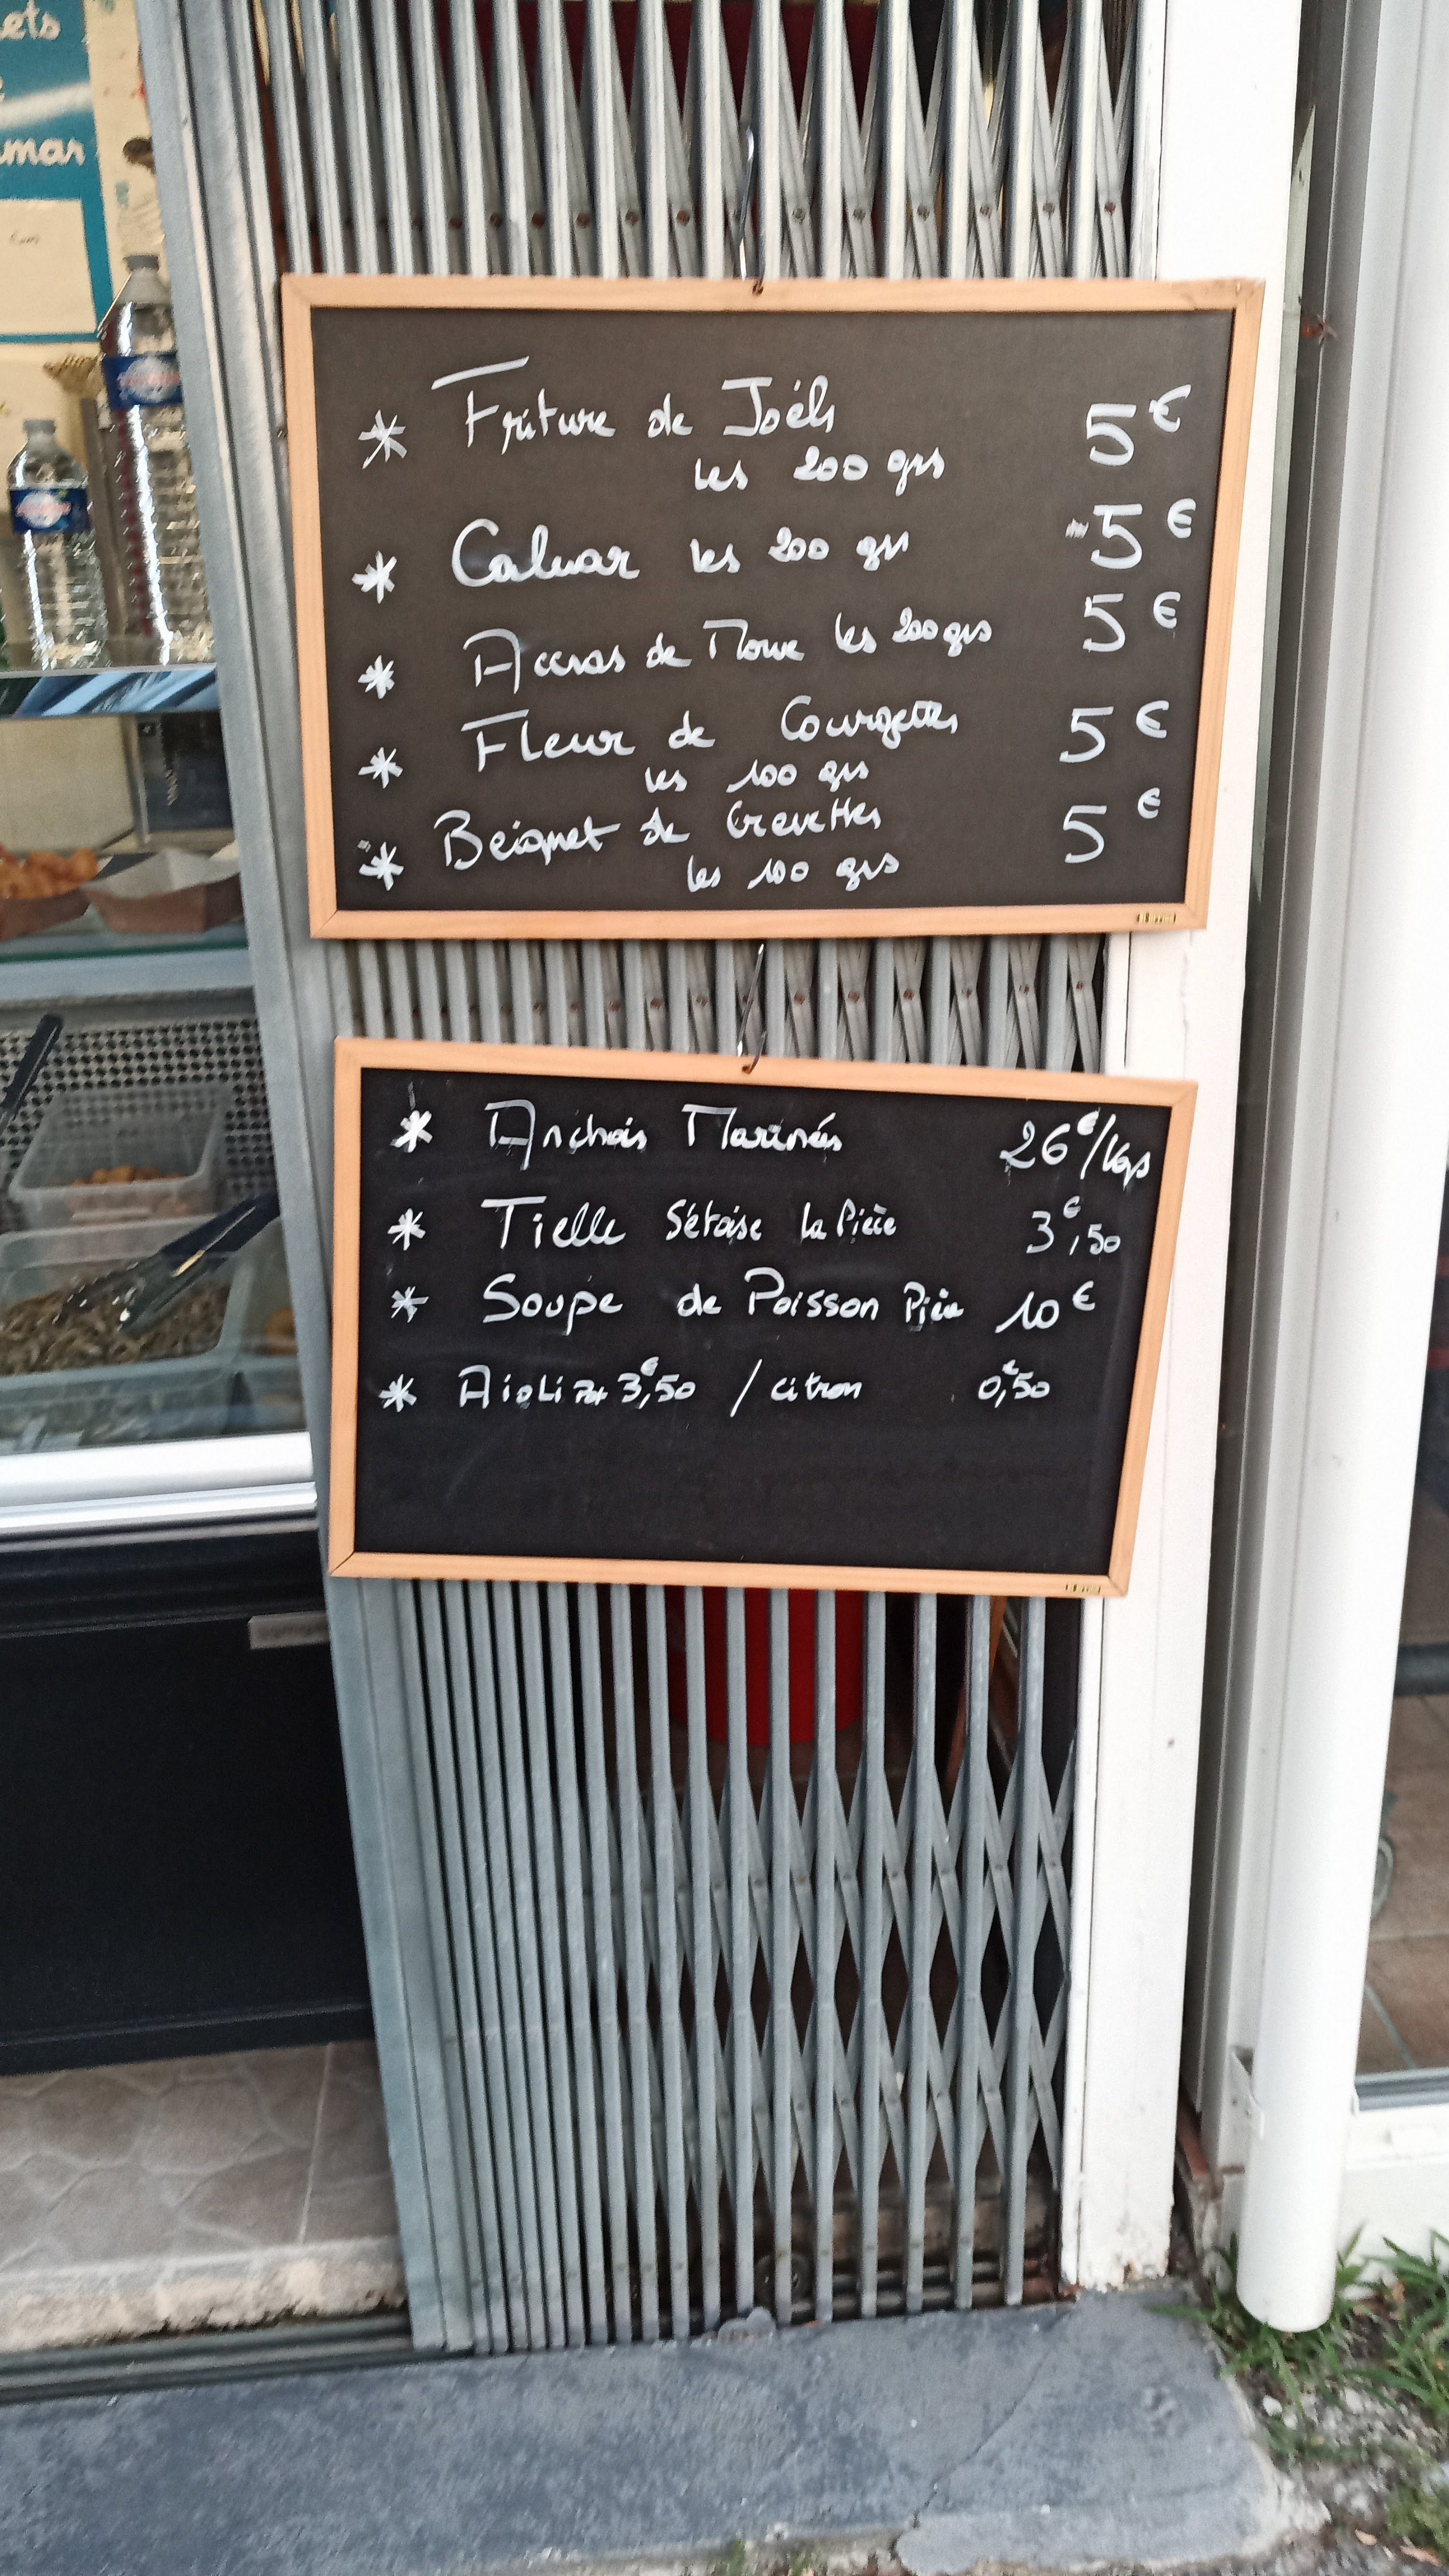 ets
mar
* Friture de Joëls 5€
les 200 grs
* Calmar les 200 grs 5€
* Accras de Morue les 200 grs 5€
* Fleur de Courgettes 5€
les 100 grs
* Beignet de Crevettes 5€
les 100 grs
* Anchois Marinés 26€/Kgs
* Tielle Sétoise la Pièce 3€,50
* Soupe de Poisson Pièce 10€
* Aioli Pot 3€,50 / citron 0€,50